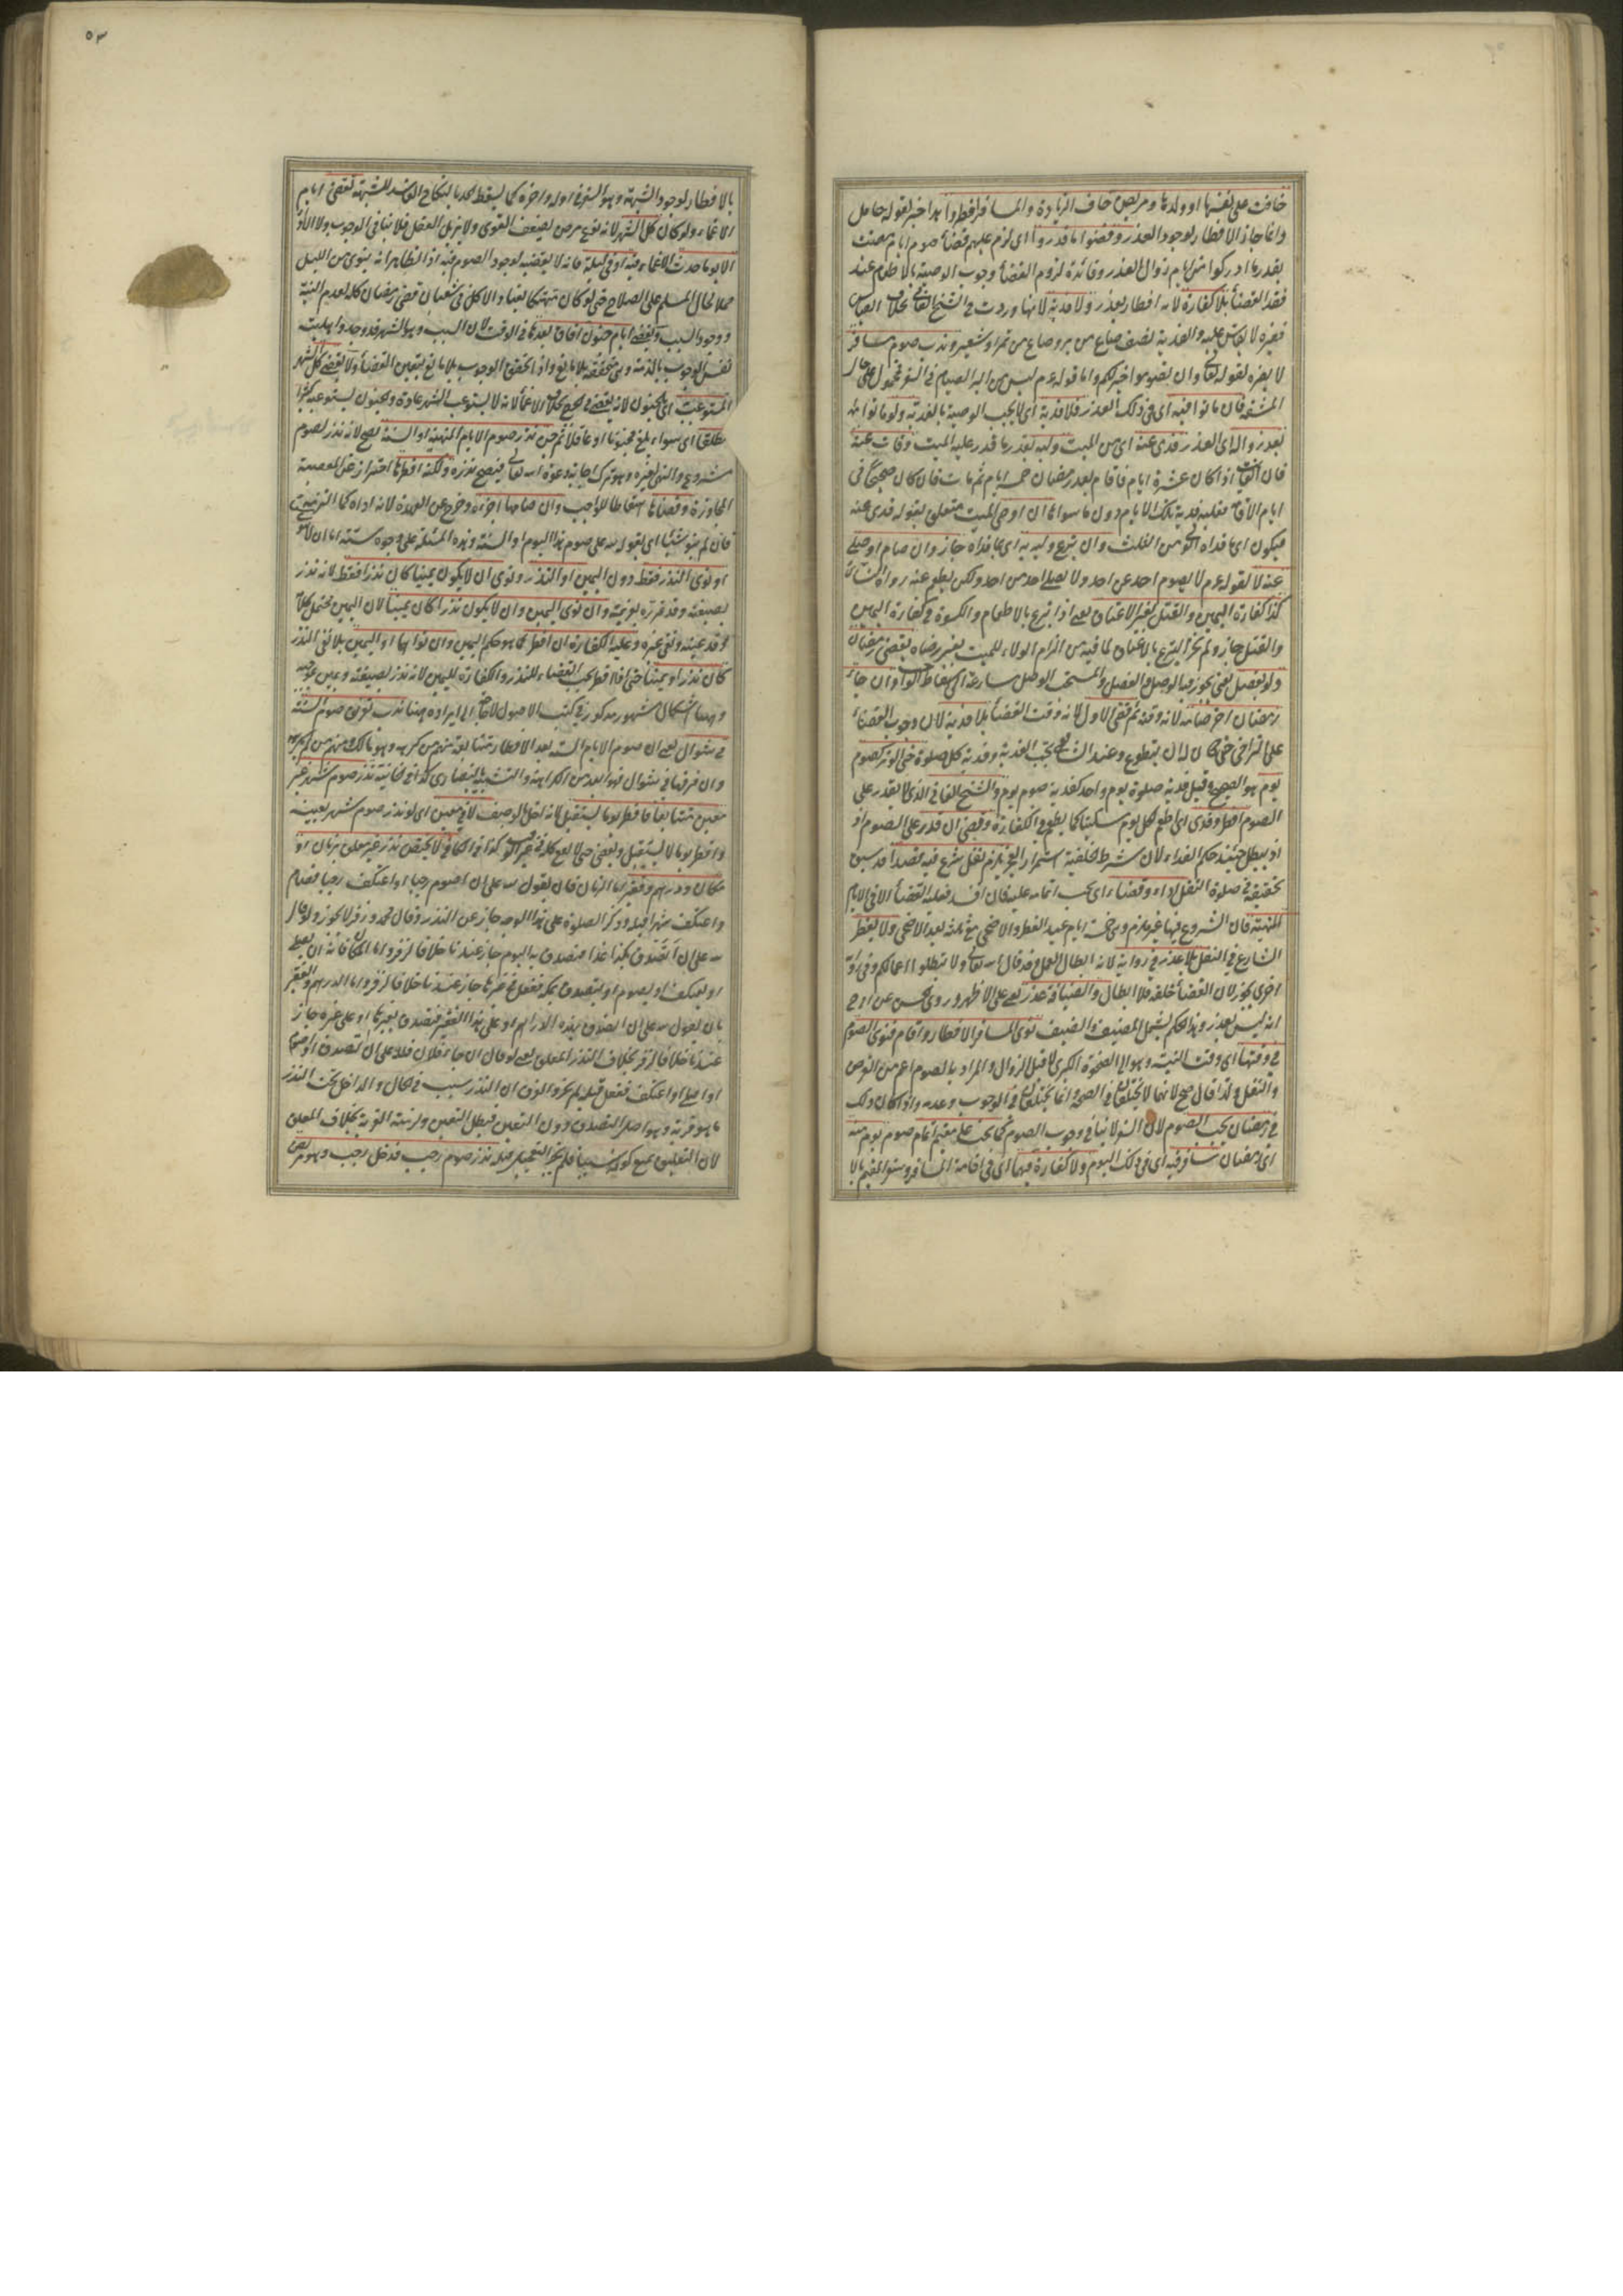 خافت على نفسها او ولدها ومريض خاف الزيادة والمسافر افطروا هذا خبر لقوله حامل
وانما جاز الافطار لوجود العذر وقضوا ما قدروا اى لزم عليهم قضاء صوم ايام مضت
بقدر ما ادركوا من ايام زوال العذر وفائدة لزوم القضاء وجوب الوصية بالاطعام عند
فقد القضاء بلا كفارة لانه افطار بعذر ولا فدية لانها وردت فى الشيخ الفانى بخلاف القياس
فغيره لا يقاس عليه والفدية نصف صاع من بر وصاع من تمر او شعير وندب صوم مسافر
لا يضره لقوله تعالى وان تصوموا خير لكم واما قوله عم ليس من البر الصيام فى السفر فمحمول على حال
المشقة فان ماتوا فيه اى فى ذلك العذر فلا فدية اى لا يجب الوصية بالفدية ولو ماتوا
بعد زواله اى العذر فدى عنه اى من الميت وليه بقدر ما قدر عليه الميت وفات عنه
فان الفائت اذا كان عشرة ايام فاقام بعد رمضان خمسة ايام ثم مات فان كان صحيحا فى
ايام الاقامة فعليه فدية تلك الايام دون ما سواها ان اوصى الميت متعلق بقوله فدى عنه
فيكون اى ما فداه الولى من الثلث وان تبرع وليه به اى بما فداه جاز وان صام او صلى
عنه لا لقوله عم لا يصوم احد عن احد ولا يصلى احد من احد ولكن يطعم عنه رواه النسائى
كذا كفارة اليمين والقتل بغير الاعتاق يعنى اذا تبرع بالاطعام والكسوة فى كفارة اليمين
والقتل جاز ولم يجز التبرع بالاعتاق لما فيه من الزام الولاء للميت بغير رضاه يقضى رمضان
ولو بفصل يعنى يجوز فيه الوصل والفصل والمستحب الوصل مسارعة الى اسقاط الواجب وان جاء
رمضان اخر صامه لانه وقته ثم قضى الاول لانه وقت القضاء بلا فدية لان وجوب القضاء
على التراخى حتى كان له ان يتطوع وعند الشافعى تجب الفدية وفدية كل صلوة حتى الوتر كصوم
يوم هو الصحيح وقيل فدية صلوة يوم واحد كفدية صوم يوم والشيخ الفانى الذى لا يقدر على
الصوم افطر وفدى اى اطعم لكل يوم مسكينا كما يطعم فى الكفارة وقضى ان قدر على الصوم اذ
اذ يبطل حينئذ حكم الفداء لان شرط الخلفية استمرار العجز يلزم نفل شرع فيه قصدا قد سبق
تحقيقه فى صلوة النفل اداء وقضاء اى يجب اتمامه عليه فان افسد فعليه القضاء الا فى الايام
المنهية فان الشروع فيها غير ملزم وهى خمسة ايام عيد الفطر والاضحى مع ثلثة بعد الاضحى ولا يفطر
الشارع فى النفل بلا عذر فى رواية لانه ابطال العمل وقد قال اسه تعالى ولا تبطلوا اعمالكم وفى رواية
اخرى يجوز لان القضاء خلفه فلا ابطال والضيافة عذر يعنى على الاظهر وروى الحسن عن ابى ح
انه ليس بعذر وهذا الحكم يشمل المضيف والضيف نوى المسافر الافطار واقام فنوى الصوم
فى وقتها اى وقت النية وهو الى الضحوة الكبرى لا قبل الزوال والمراد بالصوم اعم من الفرض
والنفل ولذا قال صح لانهما لا يختلفان فى الصحة وانما يختلفان فى الوجوب وعدمه واذا كان ذلك
فى رمضان يجب الصوم لان السفر لا ينافى وجوب الصوم كما يجب على مقيم اتمام صوم يوم منه
اى رمضان سافر فيه اى فى ذلك اليوم ولا كفارة فيهما اى فى اقامة المسافر وسفر المقيم بالا
٥٣
بالافطار لوجود الشبهة وهو السفر فى اوله واخره كما يسقط الحد بالنكاح الفاسد للشبهة يقضى ايام
الاغماء ولو كان كل الشهر لانه نوع مرض يضعف القوى ولا يزيل العقل فلا ينافى الوجوب ولا الاداء
الا يوما حدث الاغماء فيه او فى ليلة فانه لا يقضيه لوجود الصوم فيه اذ الظاهر انه ينوى من الليل
حملا لحال المسلم على الصلاح حتى لو كان متهتكا يعتاد الاكل فى شعبان قضى رمضان كله لعدم النية
ووجود السبب ويقضى ايام جنون افاق بعدها فى الوقت لان السبب وهو الشهر قد وجد واهلية
نفس الوجوب بالذمة وهى متحققة بلا مانع واذا تحقق الوجوب بلا مانع تعين القضاء ولا يقضى كل الشهر
المستوعب اى بالجنون لانه يفضى الى الحرج بخلاف الاغماء لانه لا يستوعب الشهر عادة والجنون يستوعبه كثيرا
مطلقا اى سواء بلغ مجنونا او عاقلا ثم جن نذر صوم الايام المنهية او السنة يصح لانه نذر بصوم
مشروع والنهى لغيره وهو ترك اجابة دعوة اسه تعالى فيصح نذره ولكنه افطرها احترازا عن المعصية
المجاورة وقضاها اسقاطا للواجب وان صامها اجزاه وخرج عن العهدة لانه اداه كما التزمه
فان لم ينو شيئا اى بقوله سه على صوم هذا اليوم او السنة وهذه المسئلة على وجوه ستة اما ان
او نوى النذر فقط دون اليمين او النذر ونوى ان لا يكون يمينا كان نذرا فقط لانه نذر
بصيغته وقد قرره بعزيمته وان نوى اليمين وان لا يكون نذرا كان يمينا لان اليمين محتمل كلامه
وقد عينه ونفى غيره وعليه الكفارة ان افطر كما هو حكم اليمين وان نواهما او اليمين بلا نفى النذر
كان نذرا ويمينا حتى لو افطر يجب القضاء للنذر والكفارة لليمين لانه نذر بصيغته ويمين بموجبه
وههنا اشكال مشهور مذكور فى كتب الاصول لا حاجة الى ايراده ههنا ندب تفريق صوم الستة
فى شوال يعنى ان صوم الايام الستة بعد الافطار متتابعة منهم من كرهه وهو مالك ومنهم من لم يكرهه
وان فرقها فى شوال فهو ابعد من الكراهة والتشبه بالنصارى كذا فى الخانية نذر صوم شهر غير
معين متتابعا فافطر يوما يستقبل لانه اخل بالوصف لا فى معين اى لو نذر صوم شهر بعينه
وافطر يوما لا يستقبل ويقضى حتى لا يقع كله فى غير الوقت كذا فى الكافى لا يختص نذر غير معلق بزمان او
مكان ودرهم وفقير اما الزمان فان يقول سه على ان اصوم رجبا او اعتكف رجبا فصام
واعتكف شهرا قبله وذكر الصلوة على هذا الوجه جاز عن النذر وقال محمد وزفر لا يجوز ولو قال
سه على ان اتصدق بكذا غدا فتصدق به اليوم جاز عندنا خلافا لزفر واما المكان فانه ان يصلى
او يعتكف او يصوم او يتصدق بمكة ففعل فى غيرها جاز عندنا خلافا لزفر واما الدرهم والفقير
بان يقول سه على ان اتصدق بهذه الدراهم او على هذا الفقير فتصدق بغيرها او على غيره جاز
عندنا خلافا لزفر بخلاف النذر المعلق يعنى لو قال ان جاء فلان فلله على ان اتصدق او اصوم
او اصلى او اعتكف ففعل قبله لم يجز والفرق ان النذر سبب فى الحال والداخل تحت النذر
ما هو قربة وهو اصل التصدق دون التعيين فبطل التعيين ولزمته القربة بخلاف المعلق
لان التعليق يمنع كونه سببا فلم يجز التعجيل قبله نذر صوم رجب فدخل رجب وهو مريض